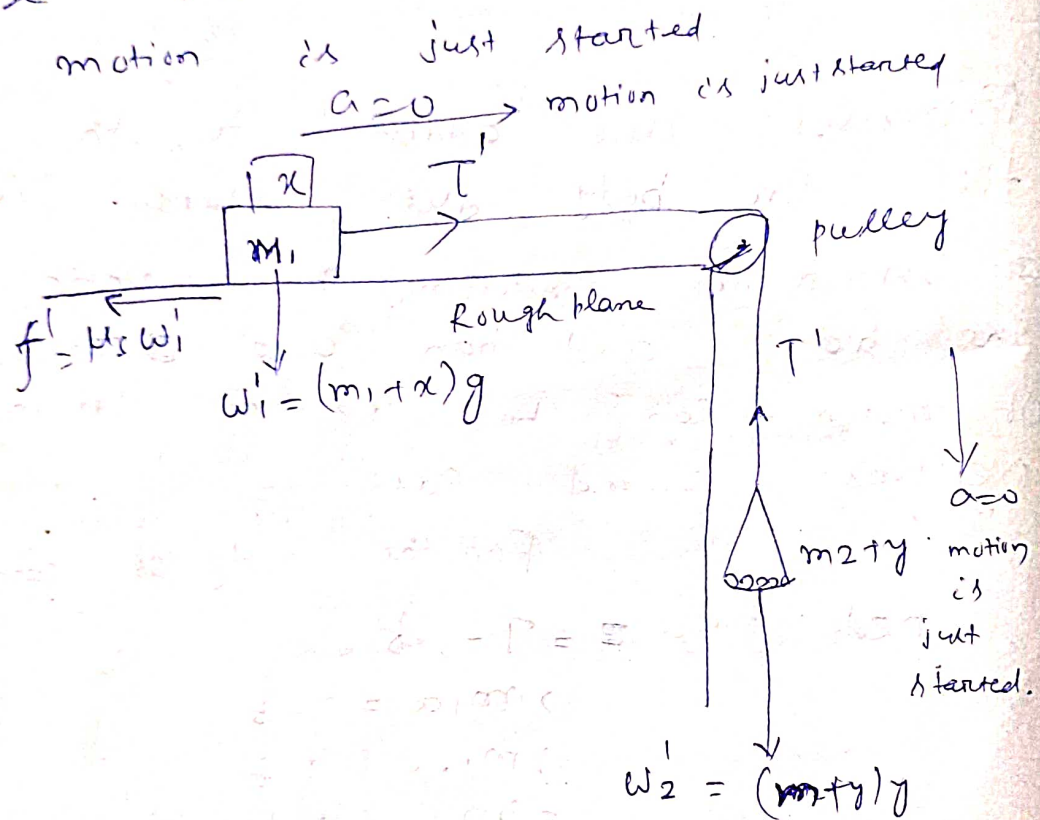 motion is just started.
a=0 motion is just started
T'
x
m₁
pulley
Rough plane
f' = μₛ w₁'
w₁' = (m₁+x)g
T'
a=0
m2+y motion
is
just
started.
w₂' = (m2+y)g